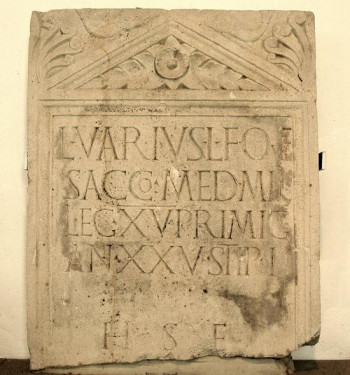 L·VARIVS·L·FO
SACCO·MED·MIL
LEG·XV·PRIMIG
AN·XXXV·STIP·
H S E